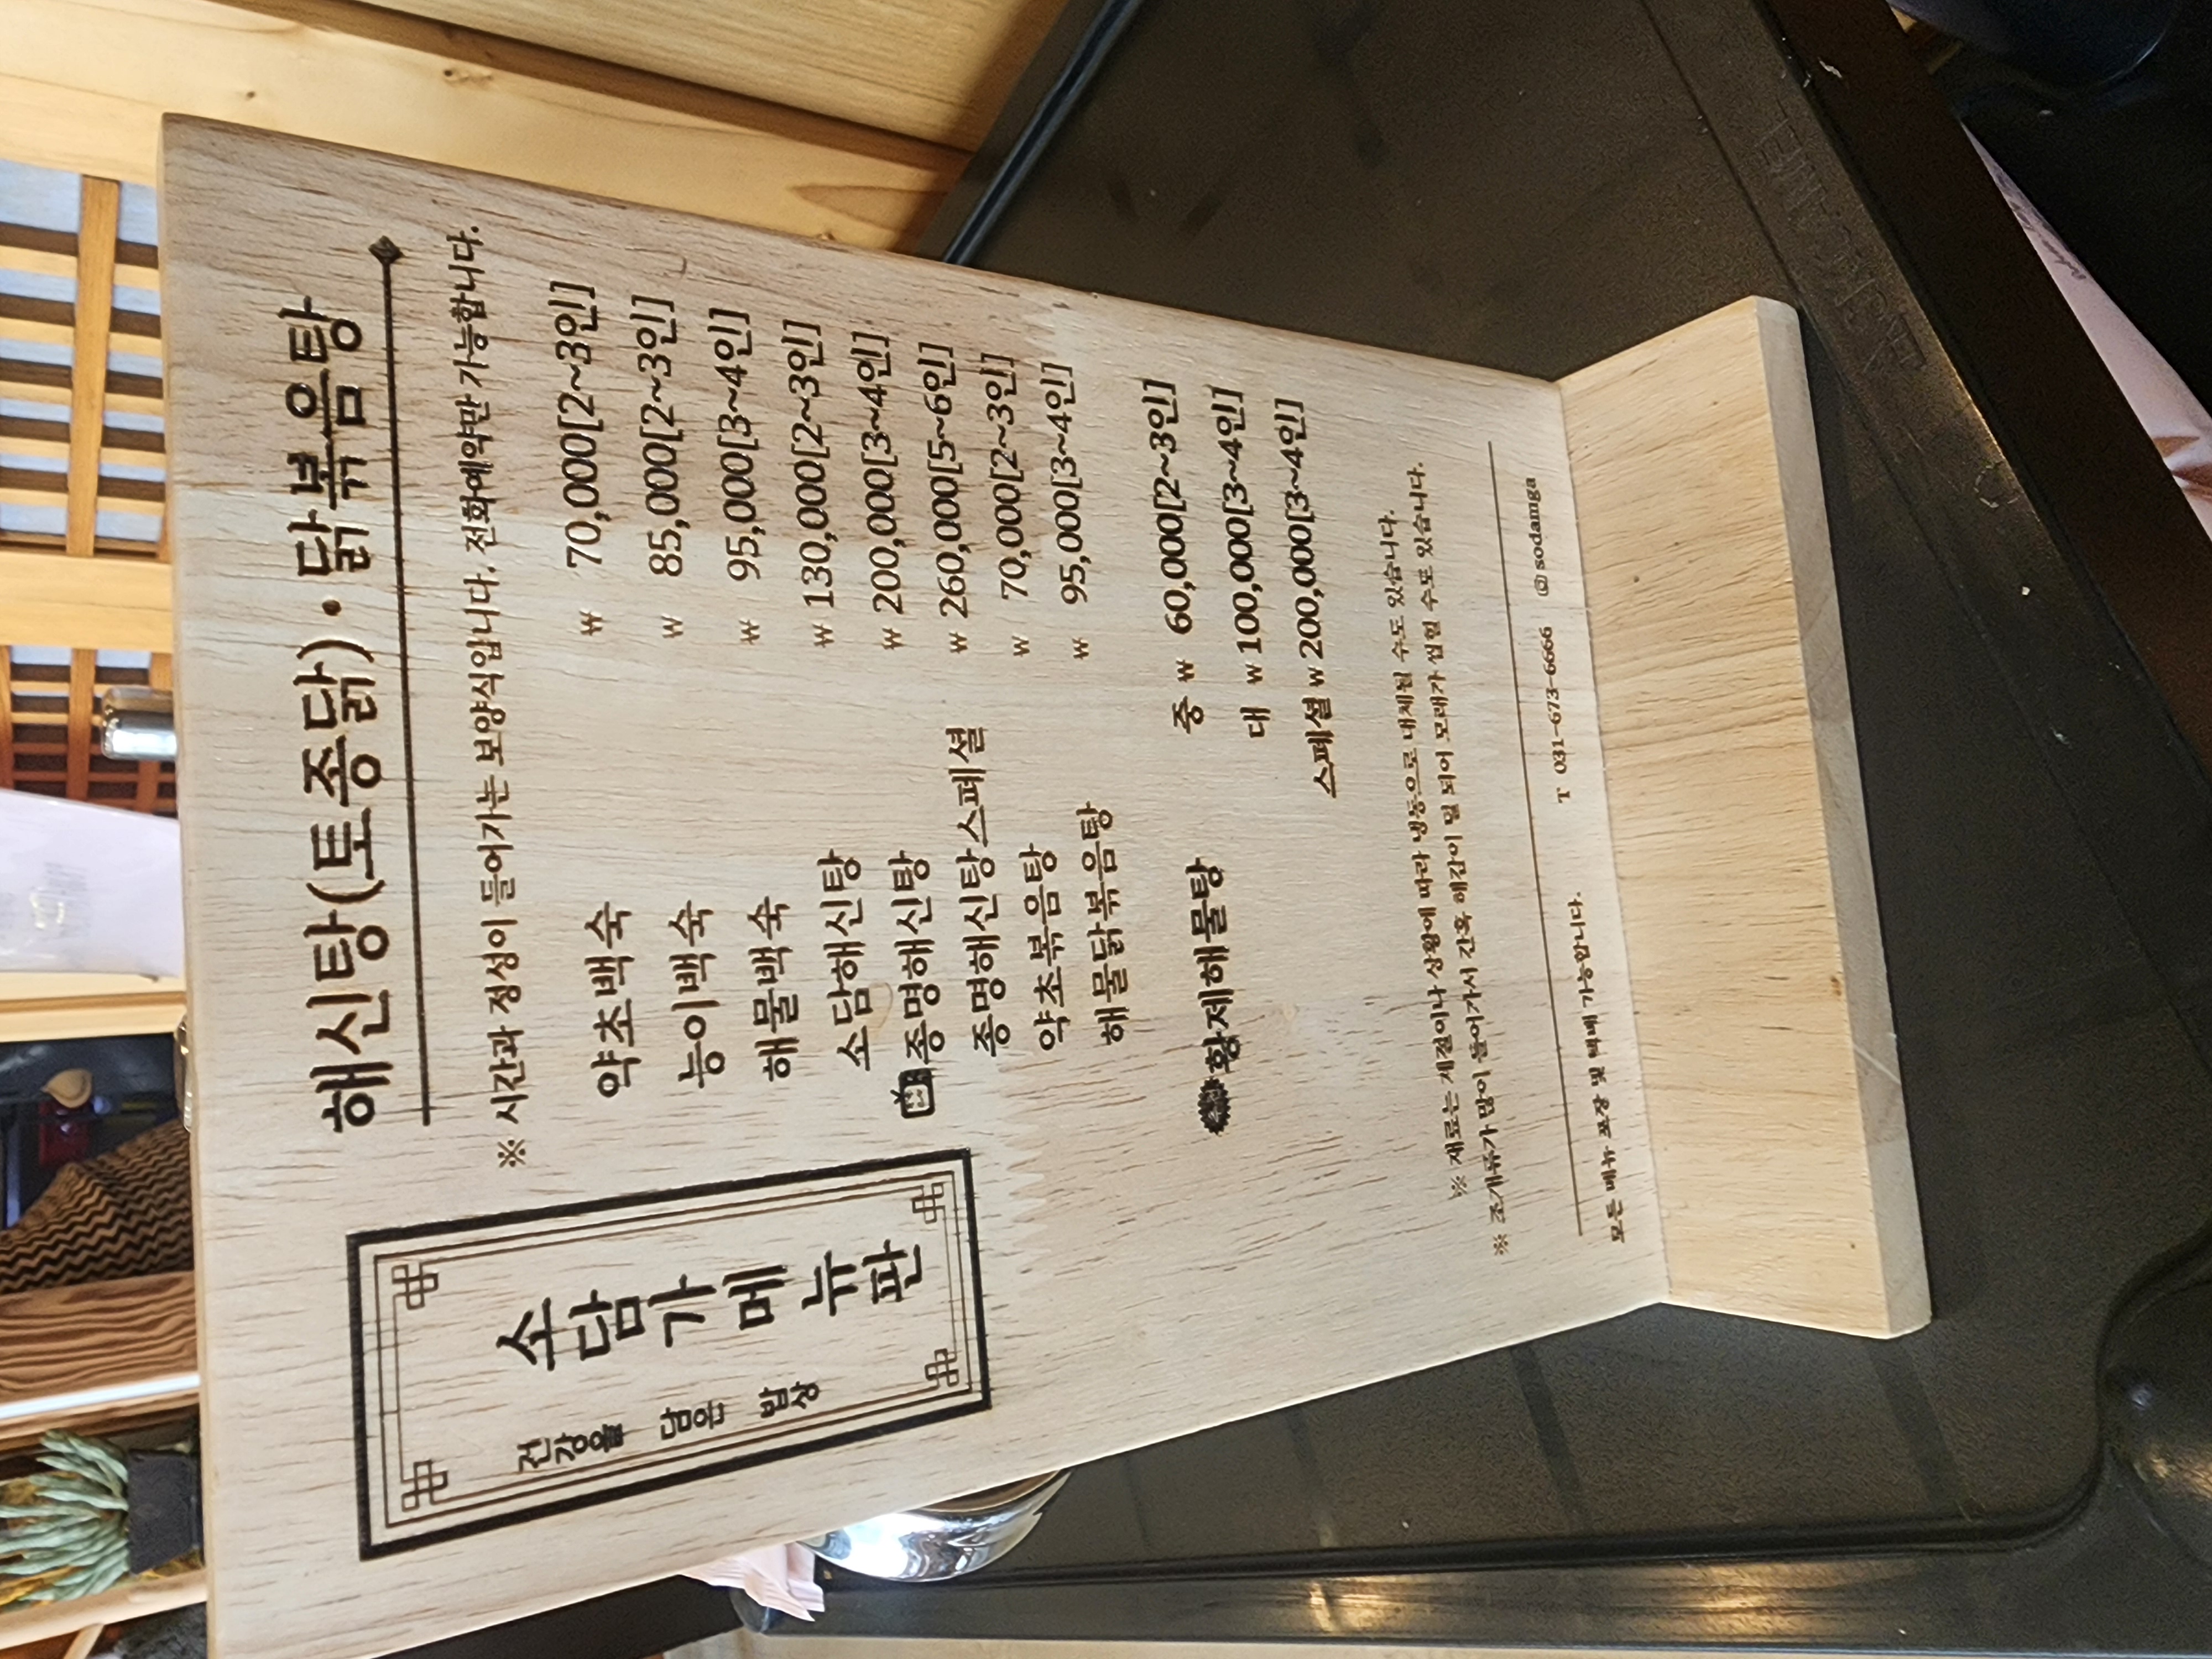 건강을 담은 밥상
소담가 메뉴판
해신탕(토종닭)·닭볶음탕
※ 시간과 정성이 들어가는 보양식입니다. 전화예약만 가능합니다.
약초백숙 ₩ 70,000[2~3인]
능이백숙 ₩ 85,000[2~3인]
해물백숙 ₩ 95,000[3~4인]
소담해신탕 ₩ 130,000[2~3인]
종명해신탕 ₩ 200,000[3~4인]
종명해신탕스페셜 ₩ 260,000[5~6인]
약초볶음탕 ₩ 70,000[2~3인]
해물닭볶음탕 ₩ 95,000[3~4인]
황제해물탕 중 ₩ 60,000[2~3인]
대 ₩ 100,000[3~4인]
스페셜 ₩ 200,000[3~4인]
※ 재료는 계절이나 상황에 따라 냉동으로 대체될 수도 있습니다.
※ 조개류가 많이 들어가서 간혹 해감이 덜 되어 모래가 씹힐 수도 있습니다.
모든 메뉴 포장 및 택배 가능합니다. T 031-673-6666 @sodamga